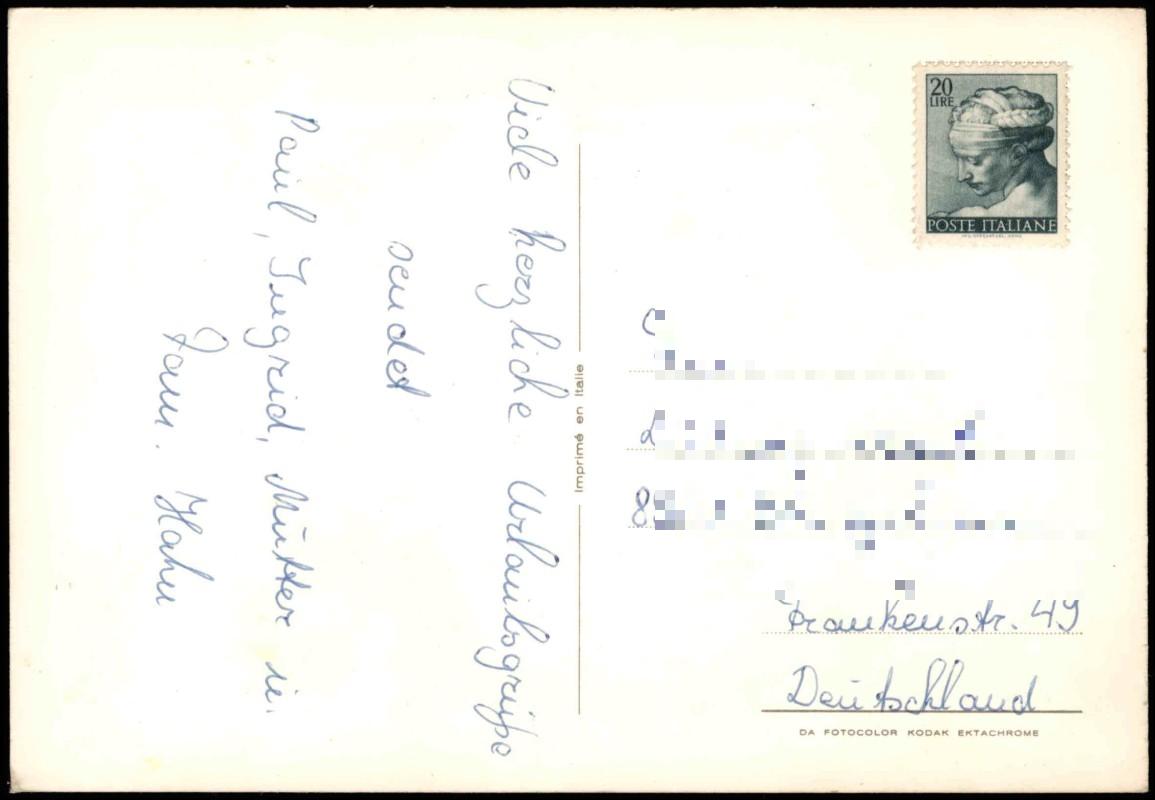 Viele herzliche Urlaubsgrüße
sendet
Paul, Ingrid, Mutter u.
Fam. Hahn
Imprimé en Italie
20
LIRE
POSTE ITALIANE
Frankenstr. 49
Deutschland
DA FOTOCOLOR KODAK EKTACHROME